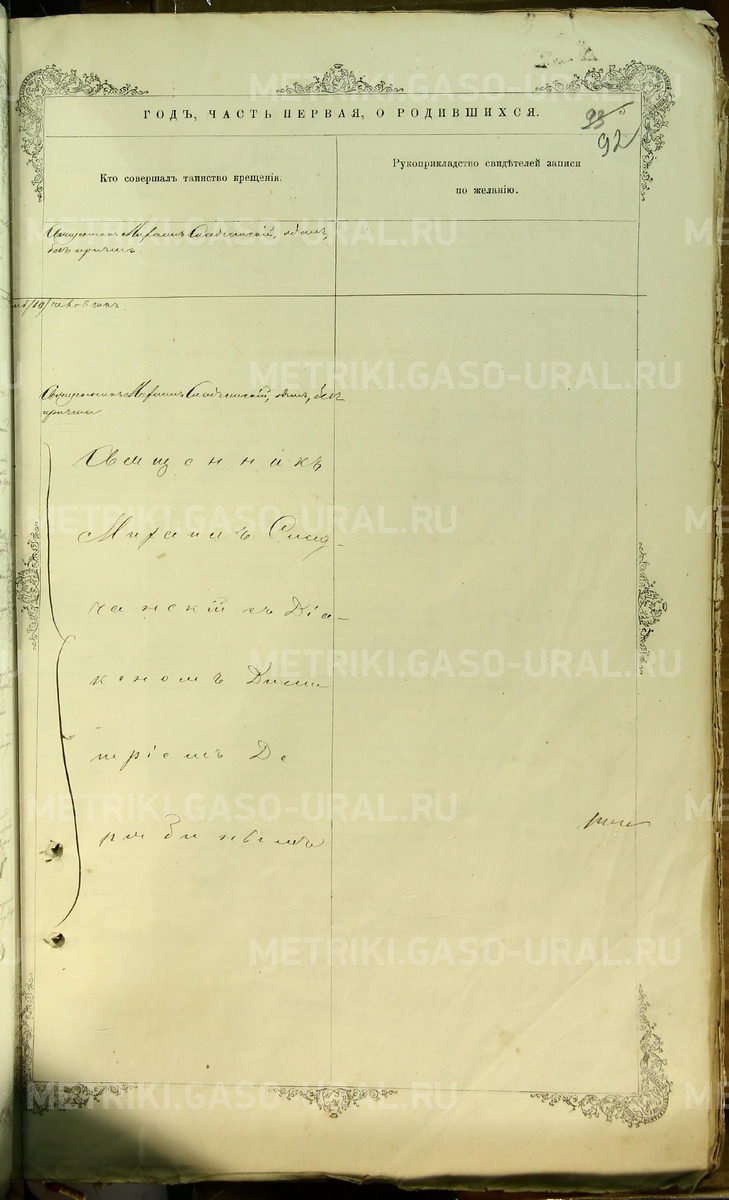 ГОДЪ, ЧАСТЬ ПЕРВАЯ, О РОДИВШИХСЯ.
93
92
Кто совершалъ таинство крещенія.
Рукоприкладство свидѣтелей записи
по желанію.
Священникъ Михаилъ, одинъ,
безъ причта.
Священникъ Михаилъ, одинъ, безъ
причта.
Священникъ
Михаилъ
чанскій съ Діа-
кономъ Дими
тріемъ Де
рябинымъ
METRIKI.GASO-URAL.RU